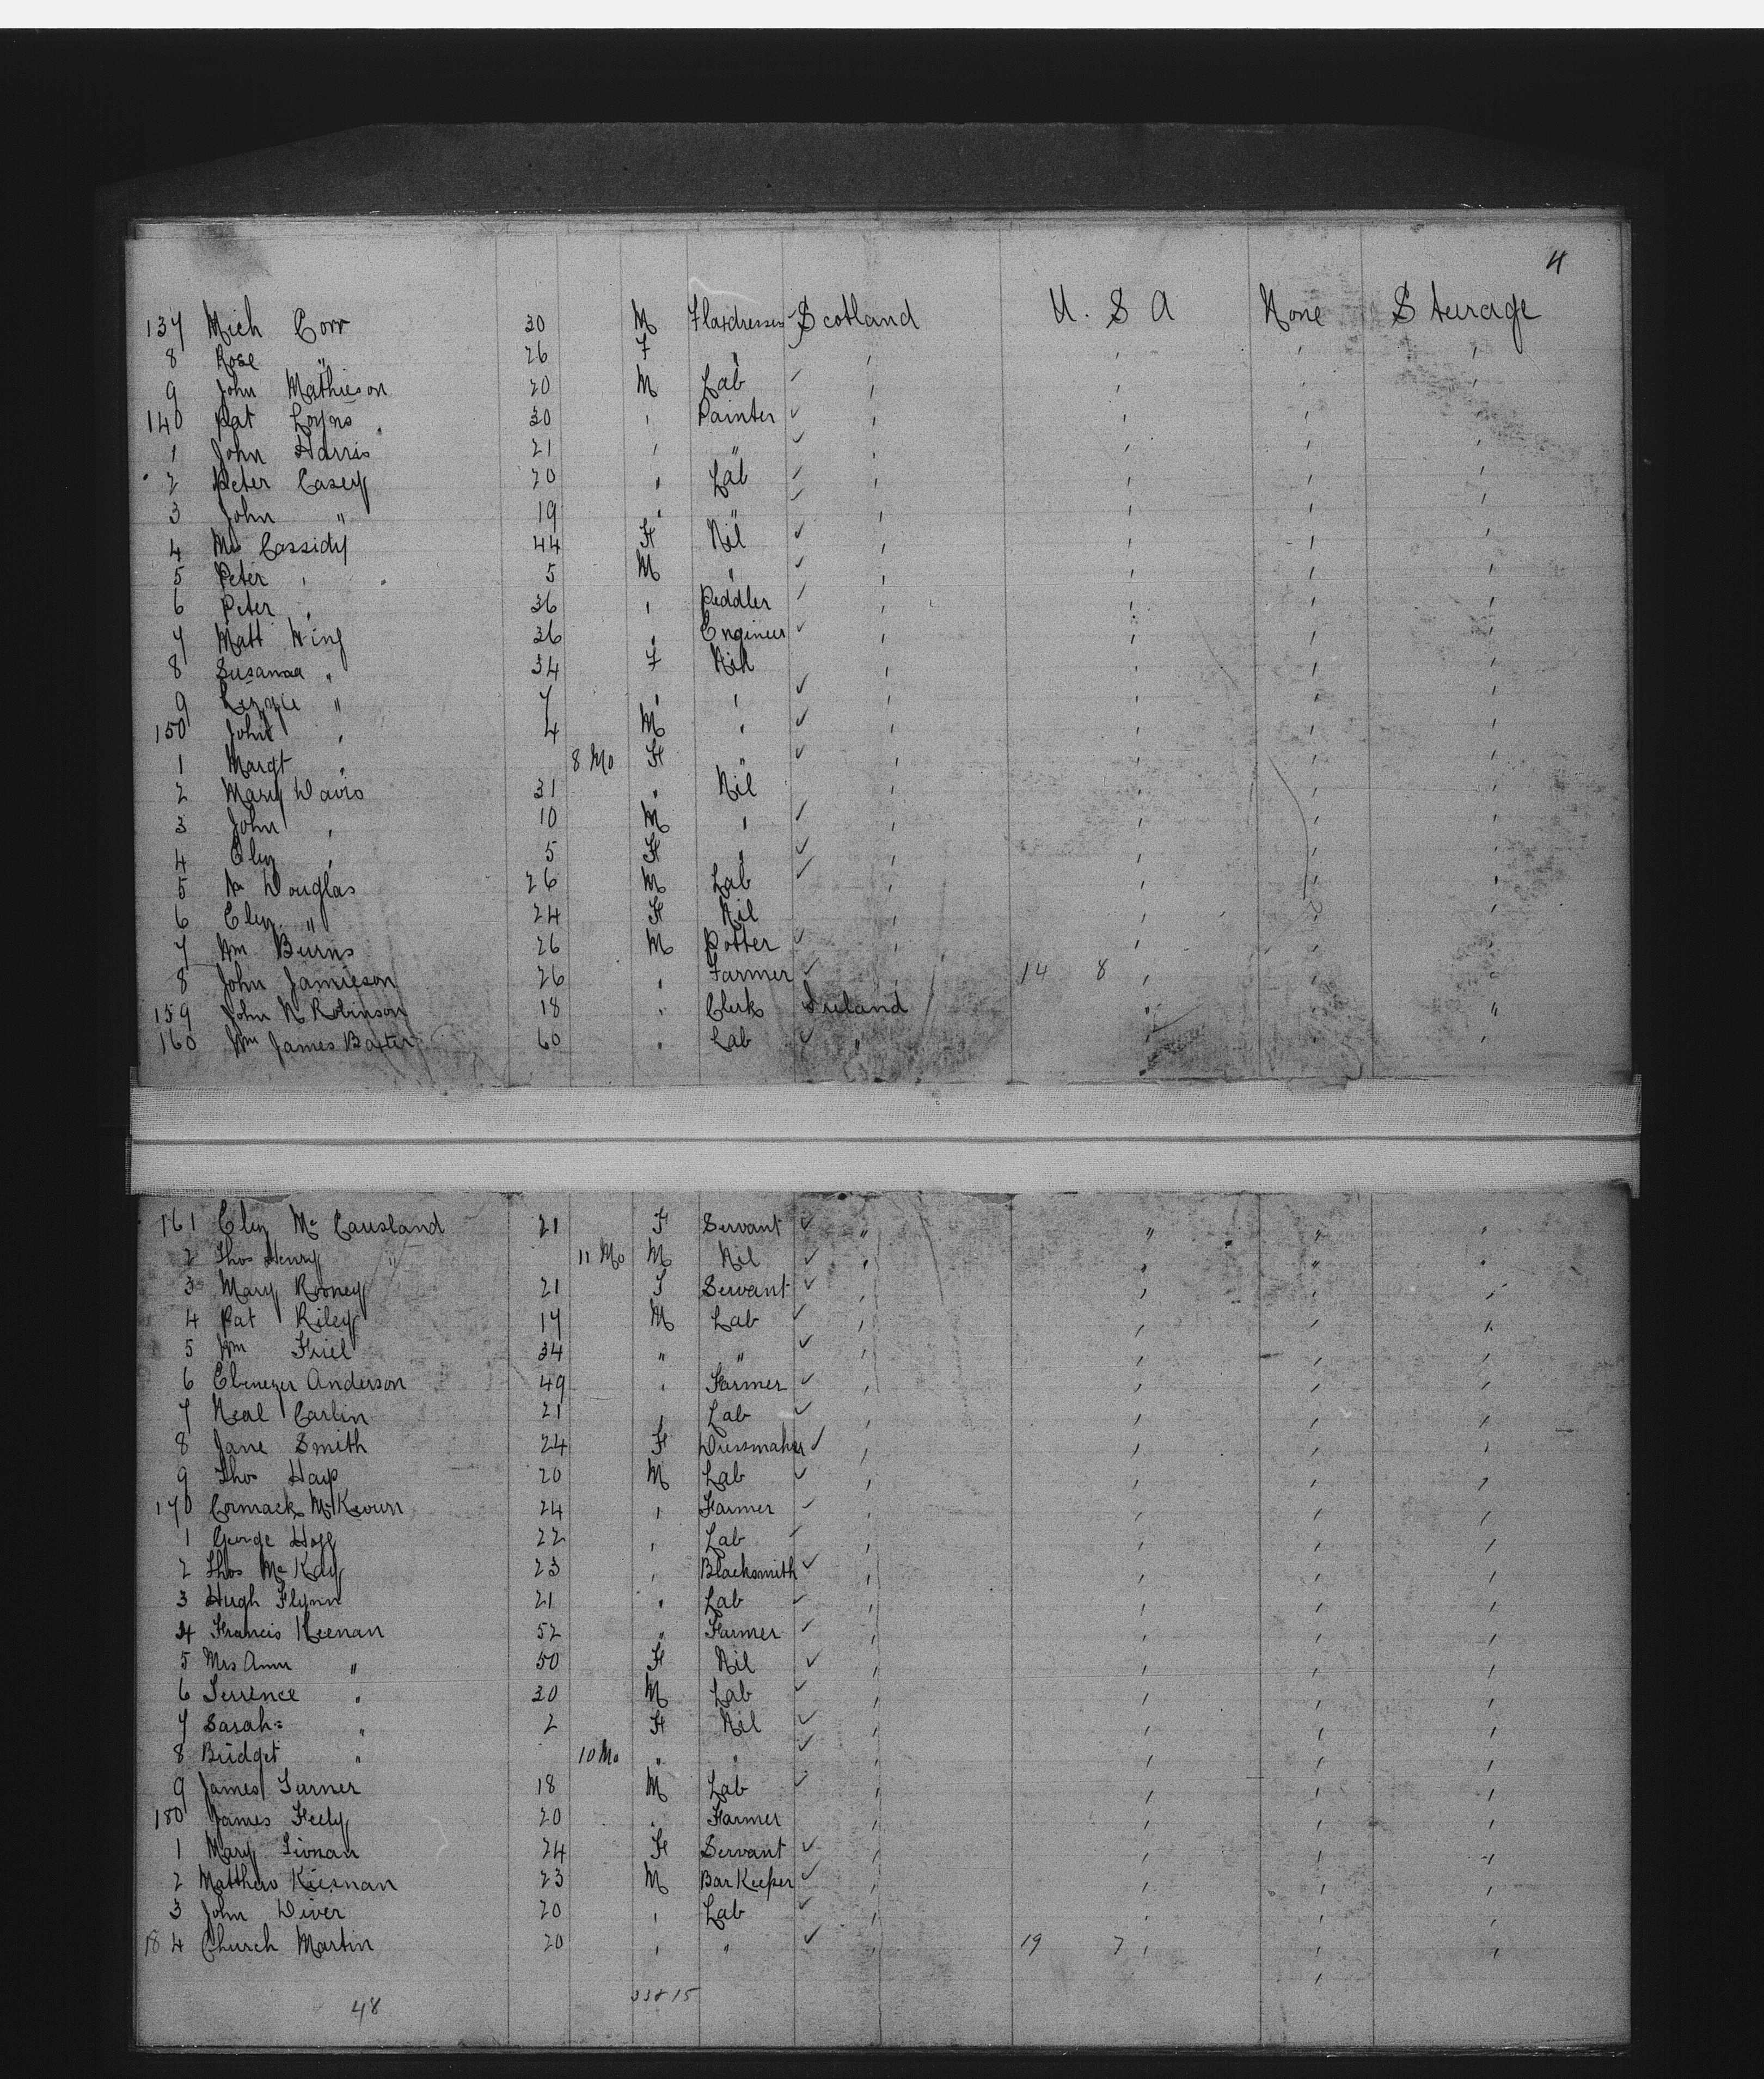 4
137 Mich Corr 30 M Flaxdresser ✓ Scotland U. S A None Steerage
8 Rose " 26 F " " " " "
9 John Mathieson 20 M Lab ✓ " " " "
140 Pat Loyns 30 " Painter ✓ " " " "
1 John Harris 21 " " ✓ " " " "
2 Peter Casey 20 " Lab ✓ " " " "
3 John " 19 " " ✓ " " " "
4 Mrs Cassidy 44 F Nil ✓ " " " "
5 Peter " 5 M " ✓ " " " "
6 Peter " 36 " Peddler ✓ " " " "
7 Matt King 36 " Engineer ✓ " " " "
8 Susanna " 34 F Nil " " " "
9 Lizzie " 7 " " ✓ " " " "
150 John " 4 M " ✓ " " " "
1 Margt " 8 Mo F " ✓ " " " "
2 Mary Davis 31 " Nil " " " "
3 John " 10 M " ✓ " " " "
4 Eliz " 5 F " ✓ " " " "
5 Douglas 26 M Lab ✓ " " " "
6 Eliz " 24 F Nil " " " "
7 Wm Burns 26 M Potter ✓ " " " "
8 John Jamieson 26 " Farmer ✓ 14 8 " " "
159 John N Robinson 18 " Clerk Ireland " " "
160 Wm James Baxter 60 " Lab ✓ " " " "
161 Eliz Mc Causland 21 F Servant ✓ " " " "
2 Thos Henry " 11 Mo M Nil ✓ " " " "
3 Mary Rooney 21 F Servant ✓ " " " "
4 Pat Riley 17 M Lab ✓ " " " "
5 Wm Friel 34 " " ✓ " " " "
6 Ebenezer Anderson 49 " Farmer ✓ " " " "
7 Neal Carlin 21 " Lab ✓ " " " "
8 Jane Smith 24 F Dressmaker ✓ " " " "
9 Thos Harp 20 M Lab ✓ " " " "
170 Cormack McKeown 24 " Farmer ✓ " " " "
1 George 22 " Lab ✓ " " " "
2 Thos Mc Kay 23 " Blacksmith ✓ " " " "
3 Hugh Flynn 21 " Lab ✓ " " " "
4 Francis Keenan 52 " Farmer ✓ " " " "
5 Mrs Ann " 50 F Nil ✓ " " " "
6 Terrence " 30 M Lab ✓ " " " "
7 Sarah " 2 F Nil ✓ " " " "
8 Bridget " 10 Mo " " ✓ " " " "
9 James Turner 18 M Lab ✓ " " " "
180 James Feely 20 " Farmer " " " "
1 Mary 24 F Servant ✓ " " " "
2 Matthew Kiernan 23 M Bar Keeper ✓ " " " "
3 John Diver 20 " Lab ✓ " " " "
184 Church Martin 20 " " ✓ " 19 7 " " "
48